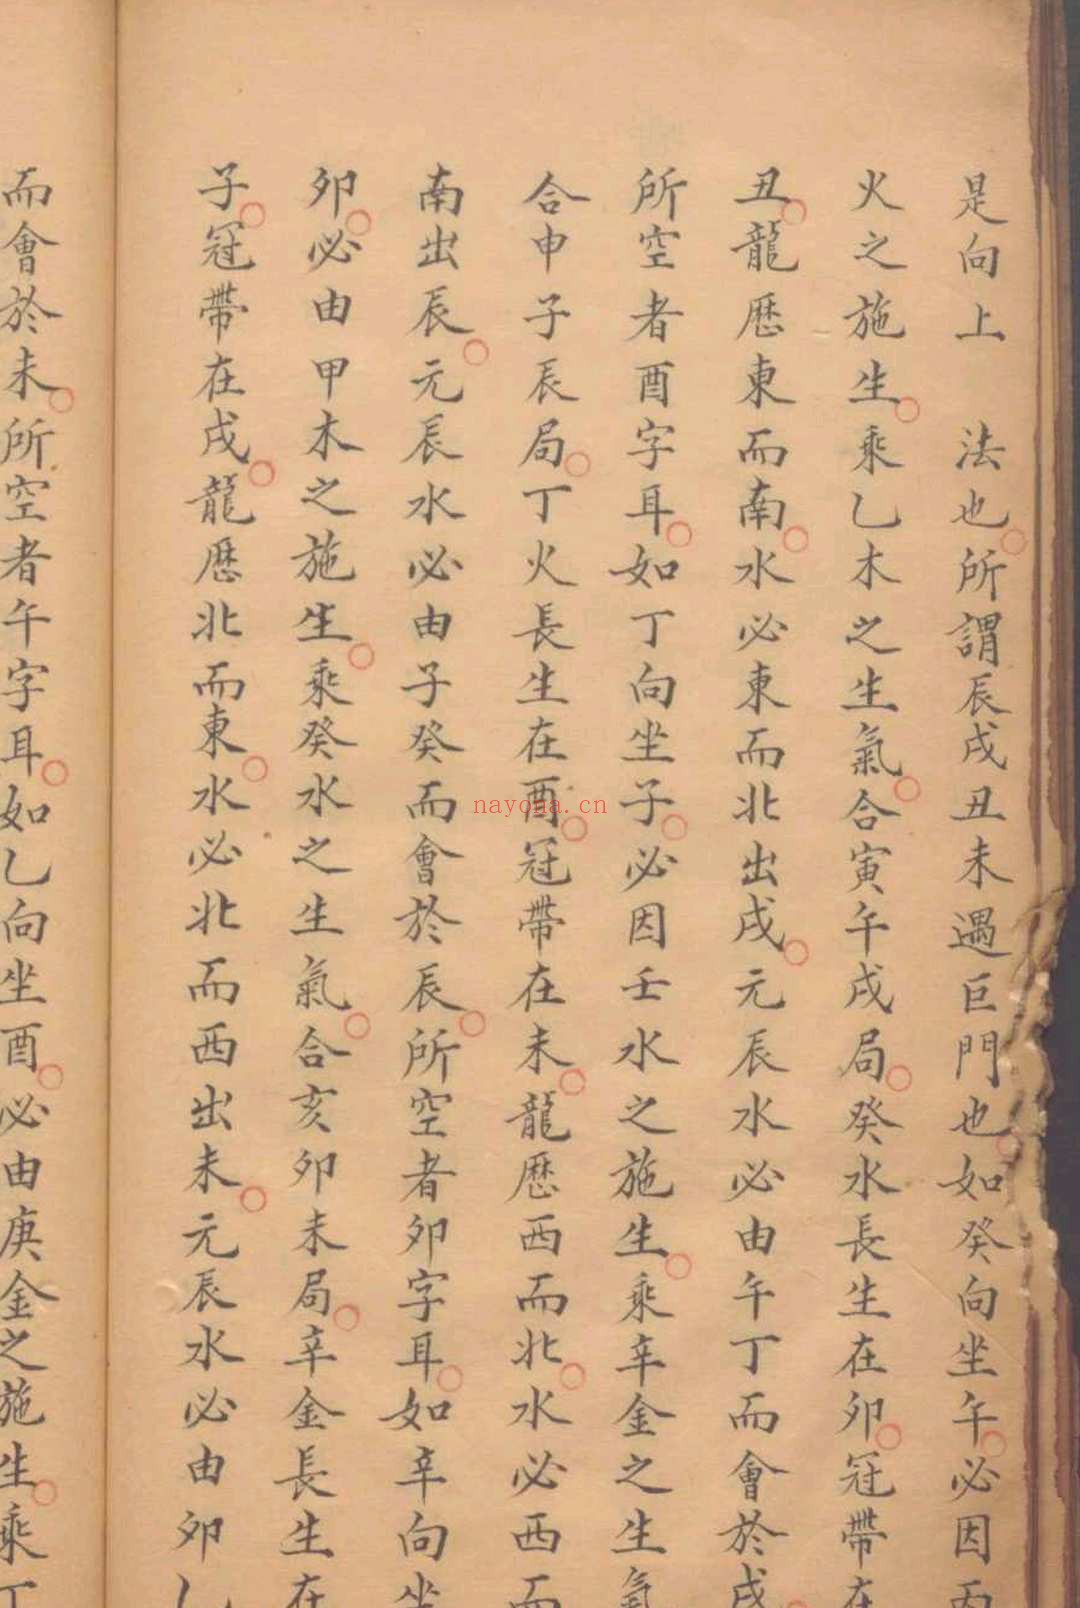 是向上　法也所謂辰戌丑未遇巨門也如癸向坐午必因丙
火之施生乘乙木之生氣合寅午戌局癸水長生在卯冠帶在
丑龍歷東而南水必東而北出戌元辰水必由午丁而會於戌
所空者酉字耳如丁向坐子必因壬水之施生乘辛金之生氣
合申子辰局丁火長生在酉冠帶在未龍歷西而北水必西而
南出辰元辰水必由子癸而會於辰所空者卯字耳如辛向坐
卯必由甲木之施生乘癸水之生氣合亥卯未局辛金長生在
子冠帶在戌龍歷北而東水必北而西出未元辰水必由卯乙
而會於未所空者午字耳如乙向坐酉必由庚金之施生乘丁
nayona.cn